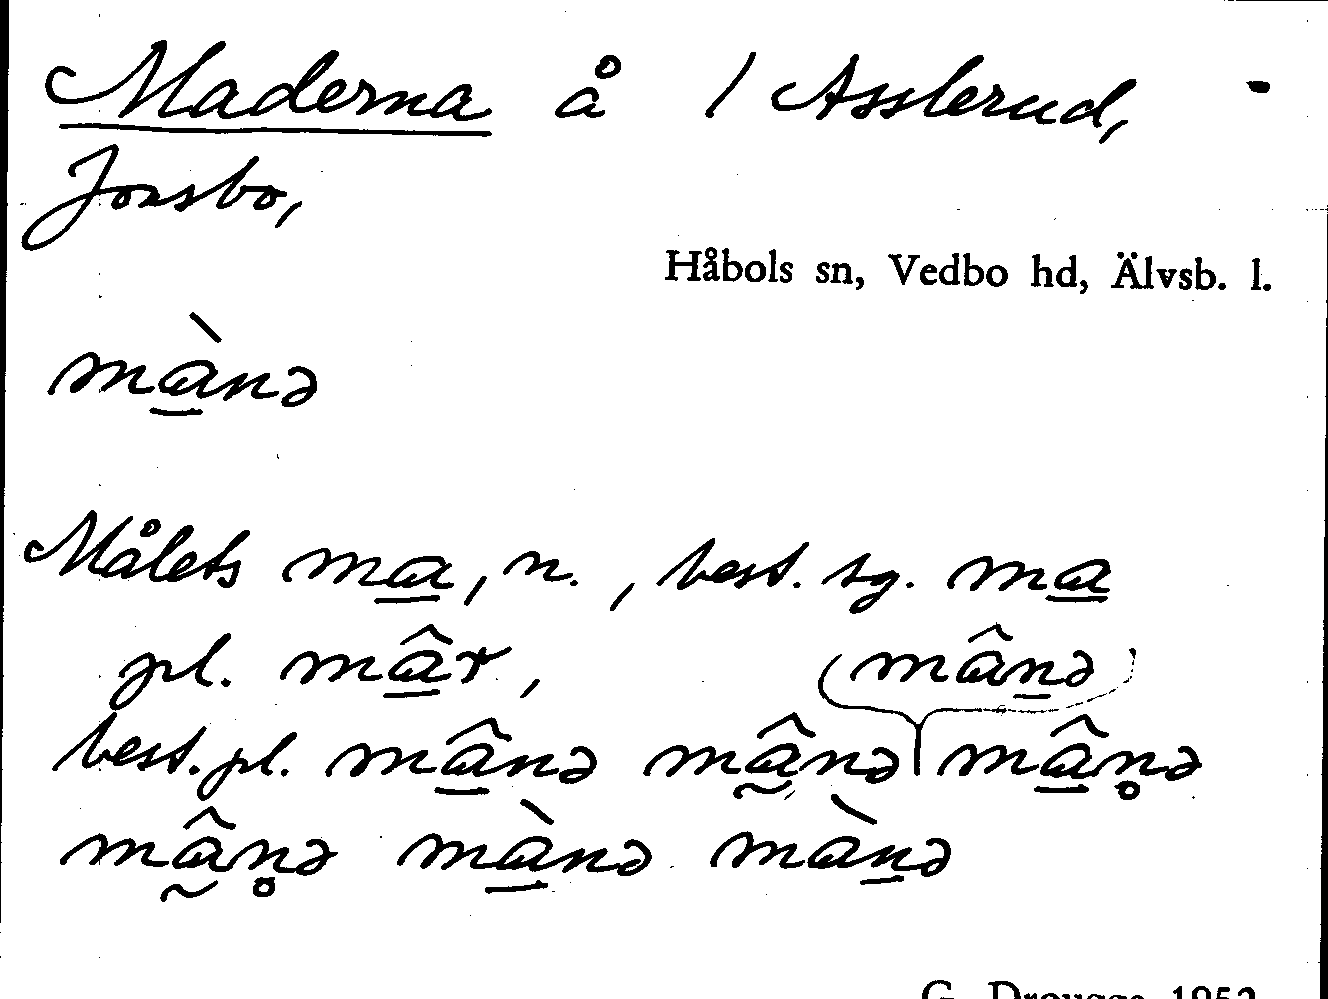 Maderna å / Asslerud,
Jonsbo,
Håbols sn, Vedbo hd, Älvsb. l.
mà̱nə
Målets ma̱, n., best. sg. ma̱
pl. mâ̱r, (mâṉə)
best. pl. mâ̱nə mâ̰nə mâ̱n̥ə
mâ̰n̥ə mà̱nə màṉə
G. Drougge 1952